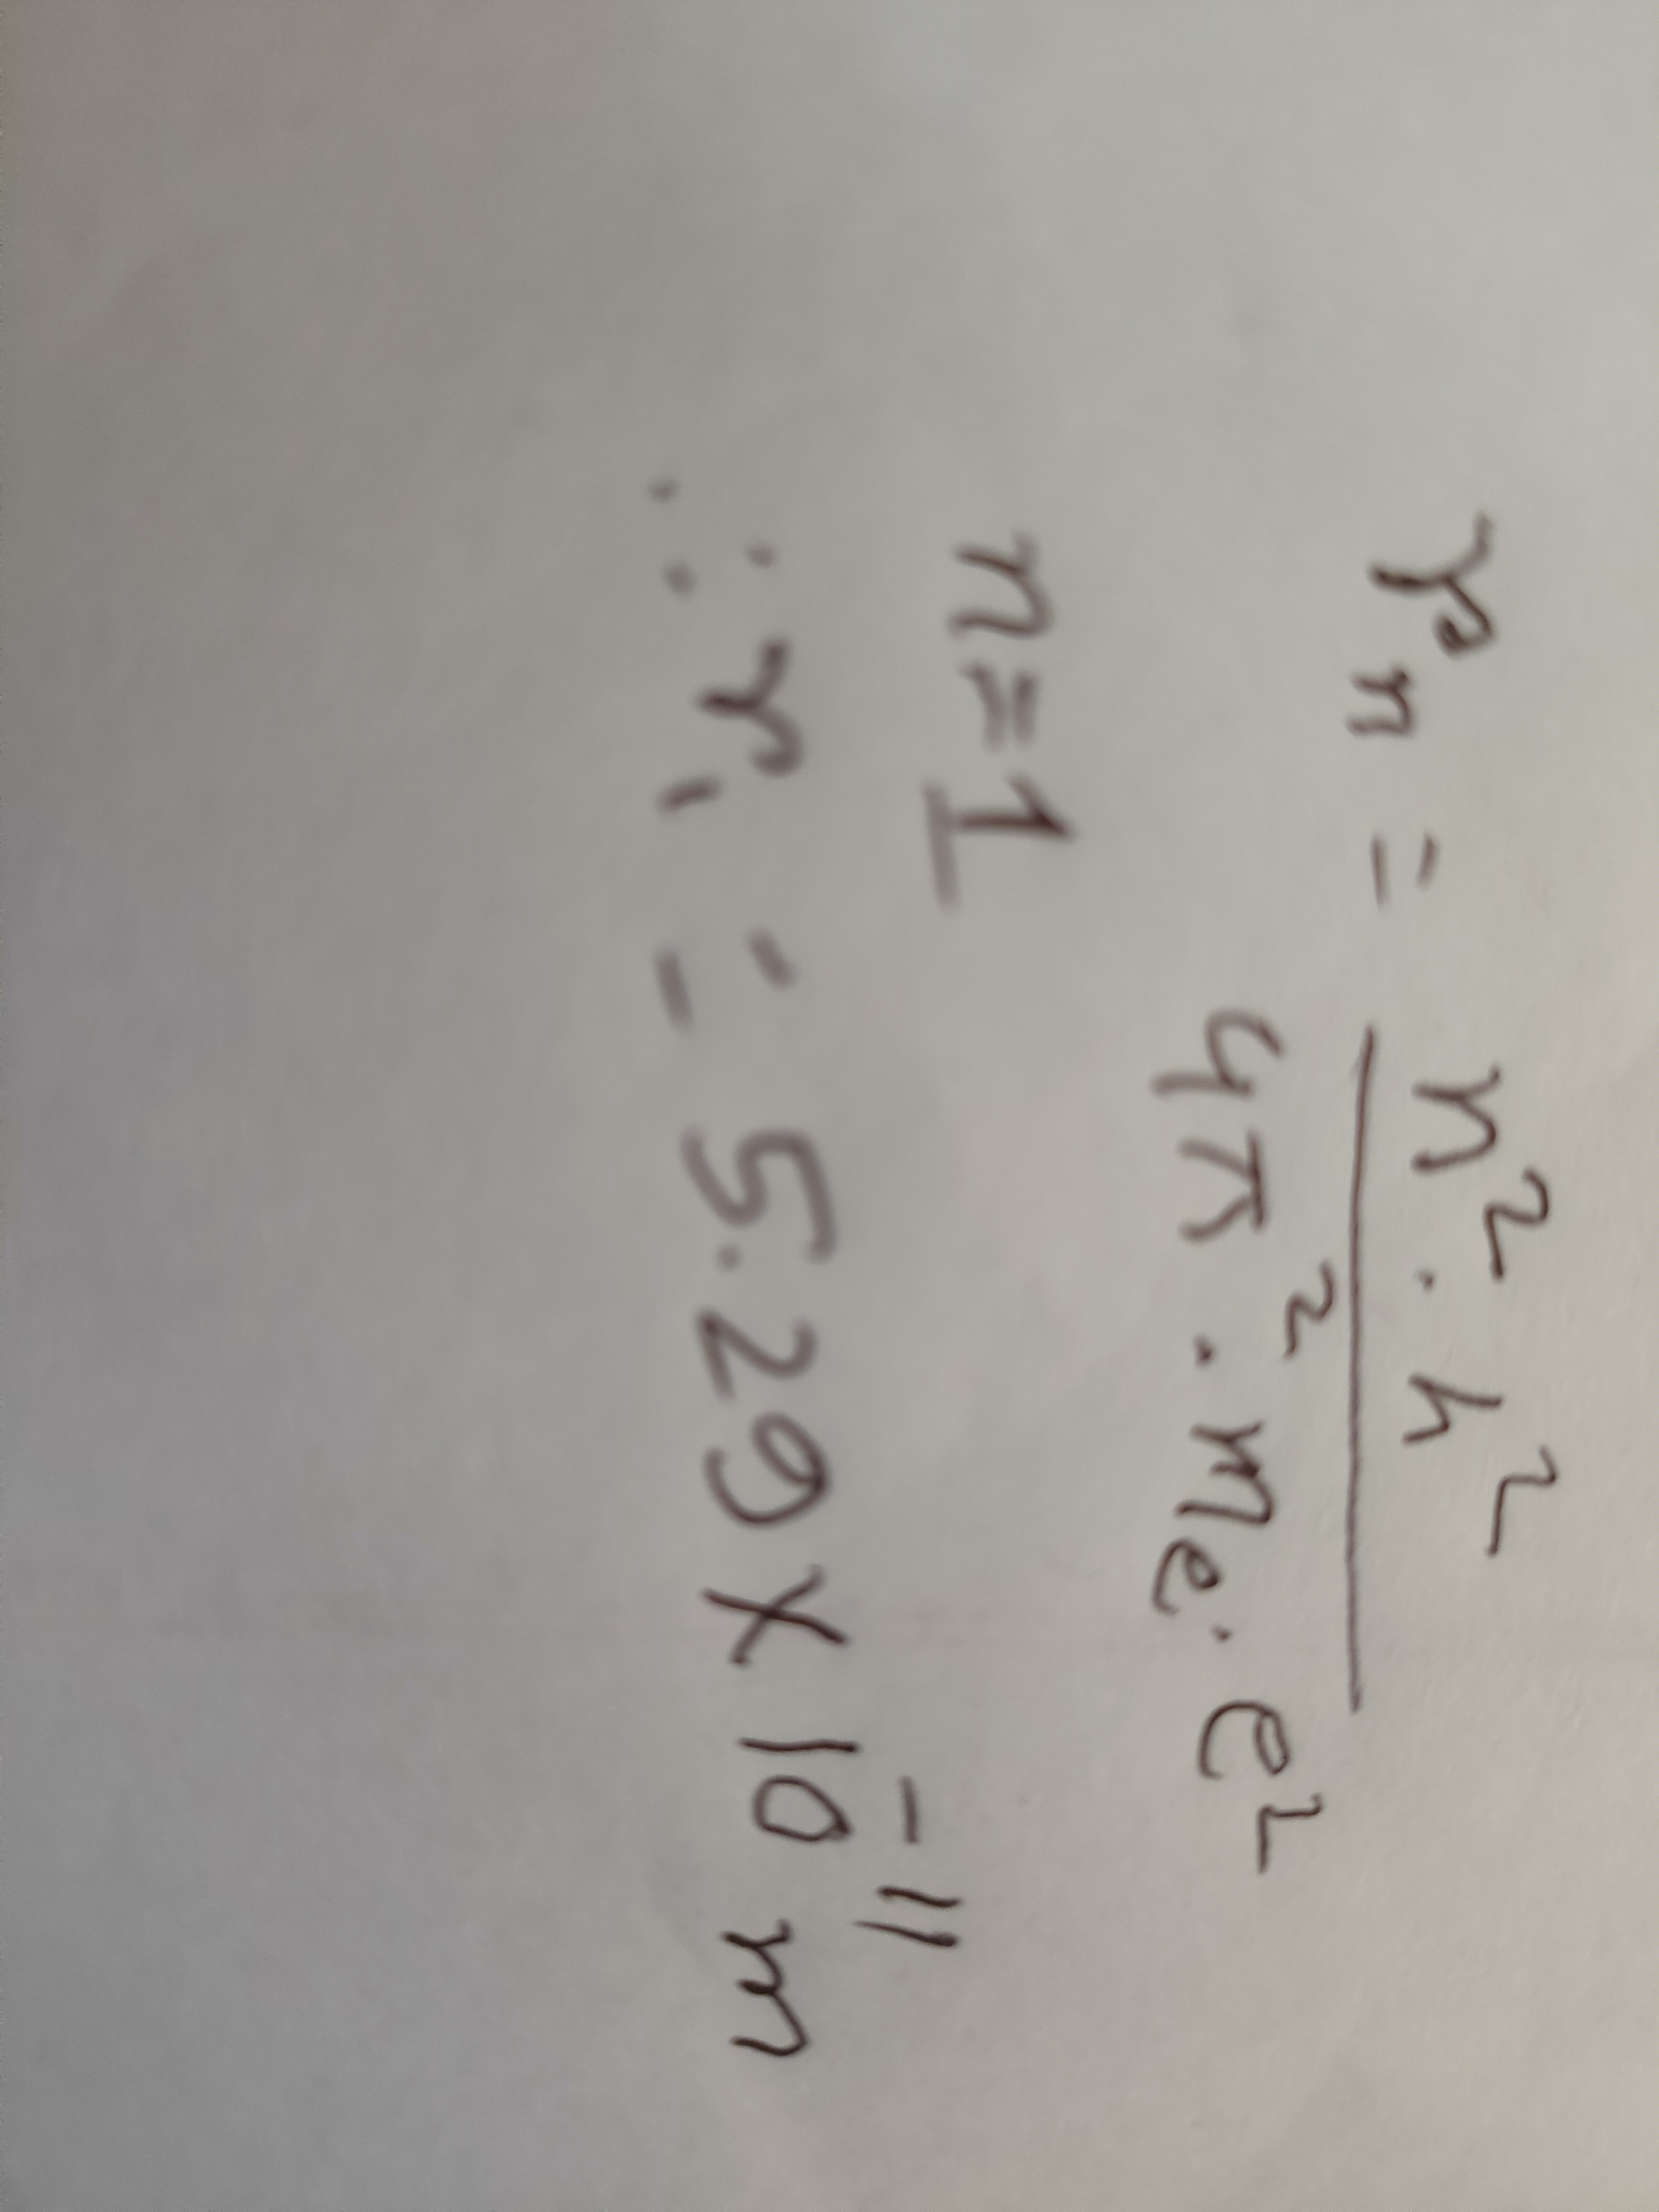 rₙ = n² · h² / 4π² · mₑ · e²
n = 1
∴ r₁ = 5.29 × 10⁻¹¹ m